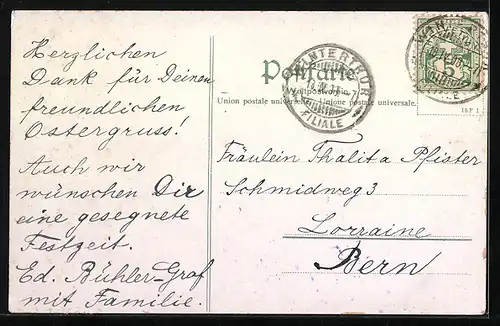 Herzlichen
Dank für Deinen
freundlichen
Ostergruss!
Auch wir
wünschen Dir
eine gesegnete
Festzeit.
Ed. Bühler-Graf
mit Familie.
Postkarte
Weltpostverein
Union postale universelle. Unione postale universale.
WINTERTHUR
FILIALE
Fräulein Thalita Pfister
Schmidweg 3
Lorraine
Bern